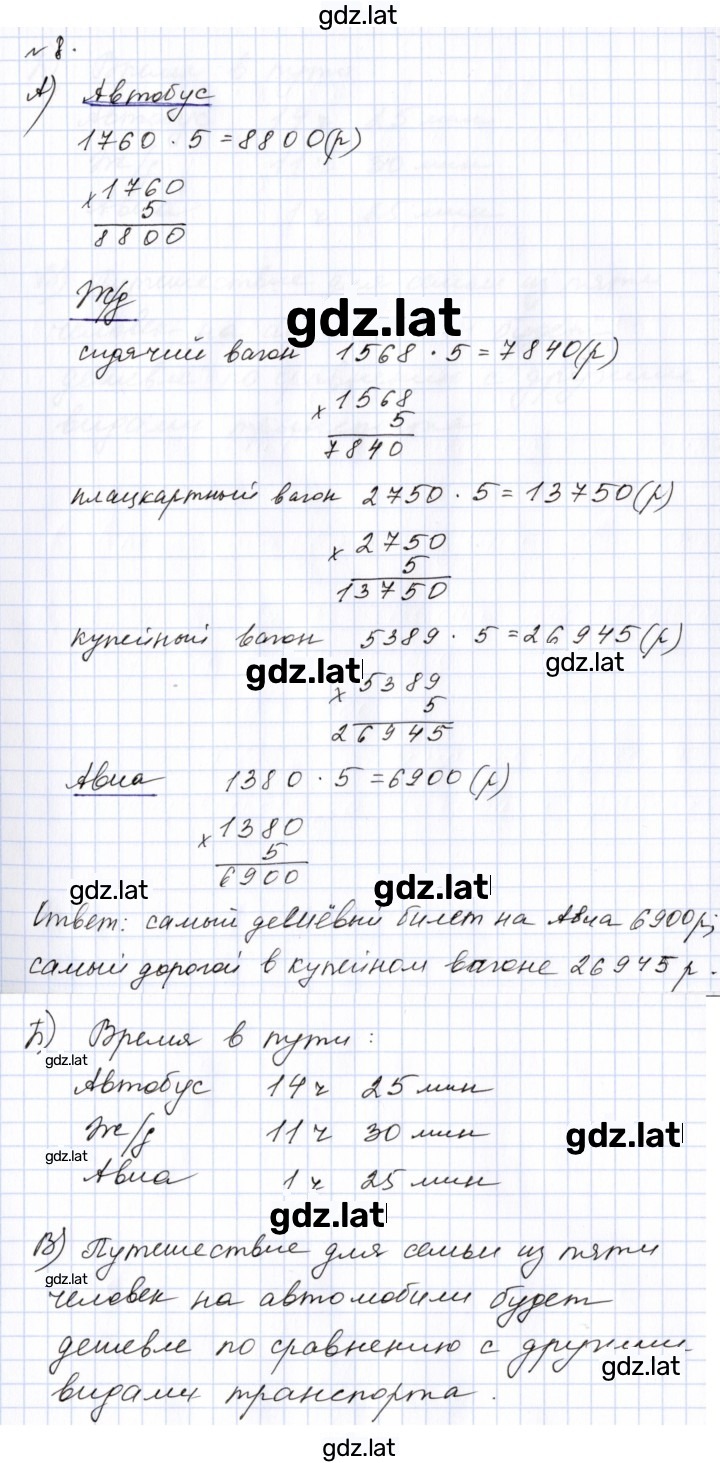 gdz.lat
№ 8.
А) Автобус
1760 · 5 = 8800(р)
х 1760
5
8800
Ж/д
gdz.lat
сидячий вагон 1568 · 5 = 7840(р)
х 1568
5
7840
плацкартный вагон 2750 · 5 = 13750(р)
х 2750
5
13750
купейный вагон 5389 · 5 = 26945(р)
gdz.lat
gdz.lat
х 5389
5
26945
Авиа 1380 · 5 = 6900 (р)
х 1380
5
6900
gdz.lat gdz.lat
Ответ: самый дешёвый билет на Авиа 6900р;
самый дорогой в купейном вагоне 26945 р.
Б) Время в пути:
gdz.lat
Автобус 14 ч 25 мин
ж/д 11 ч 30 мин
gdz.lat
gdz.lat
Авиа 1 ч 25 мин
gdz.lat
В) Путешествие для семьи из пяти
gdz.lat
человек на автомобили будет
дешевле по сравнению с другими
gdz.lat
видами транспорта.
gdz.lat